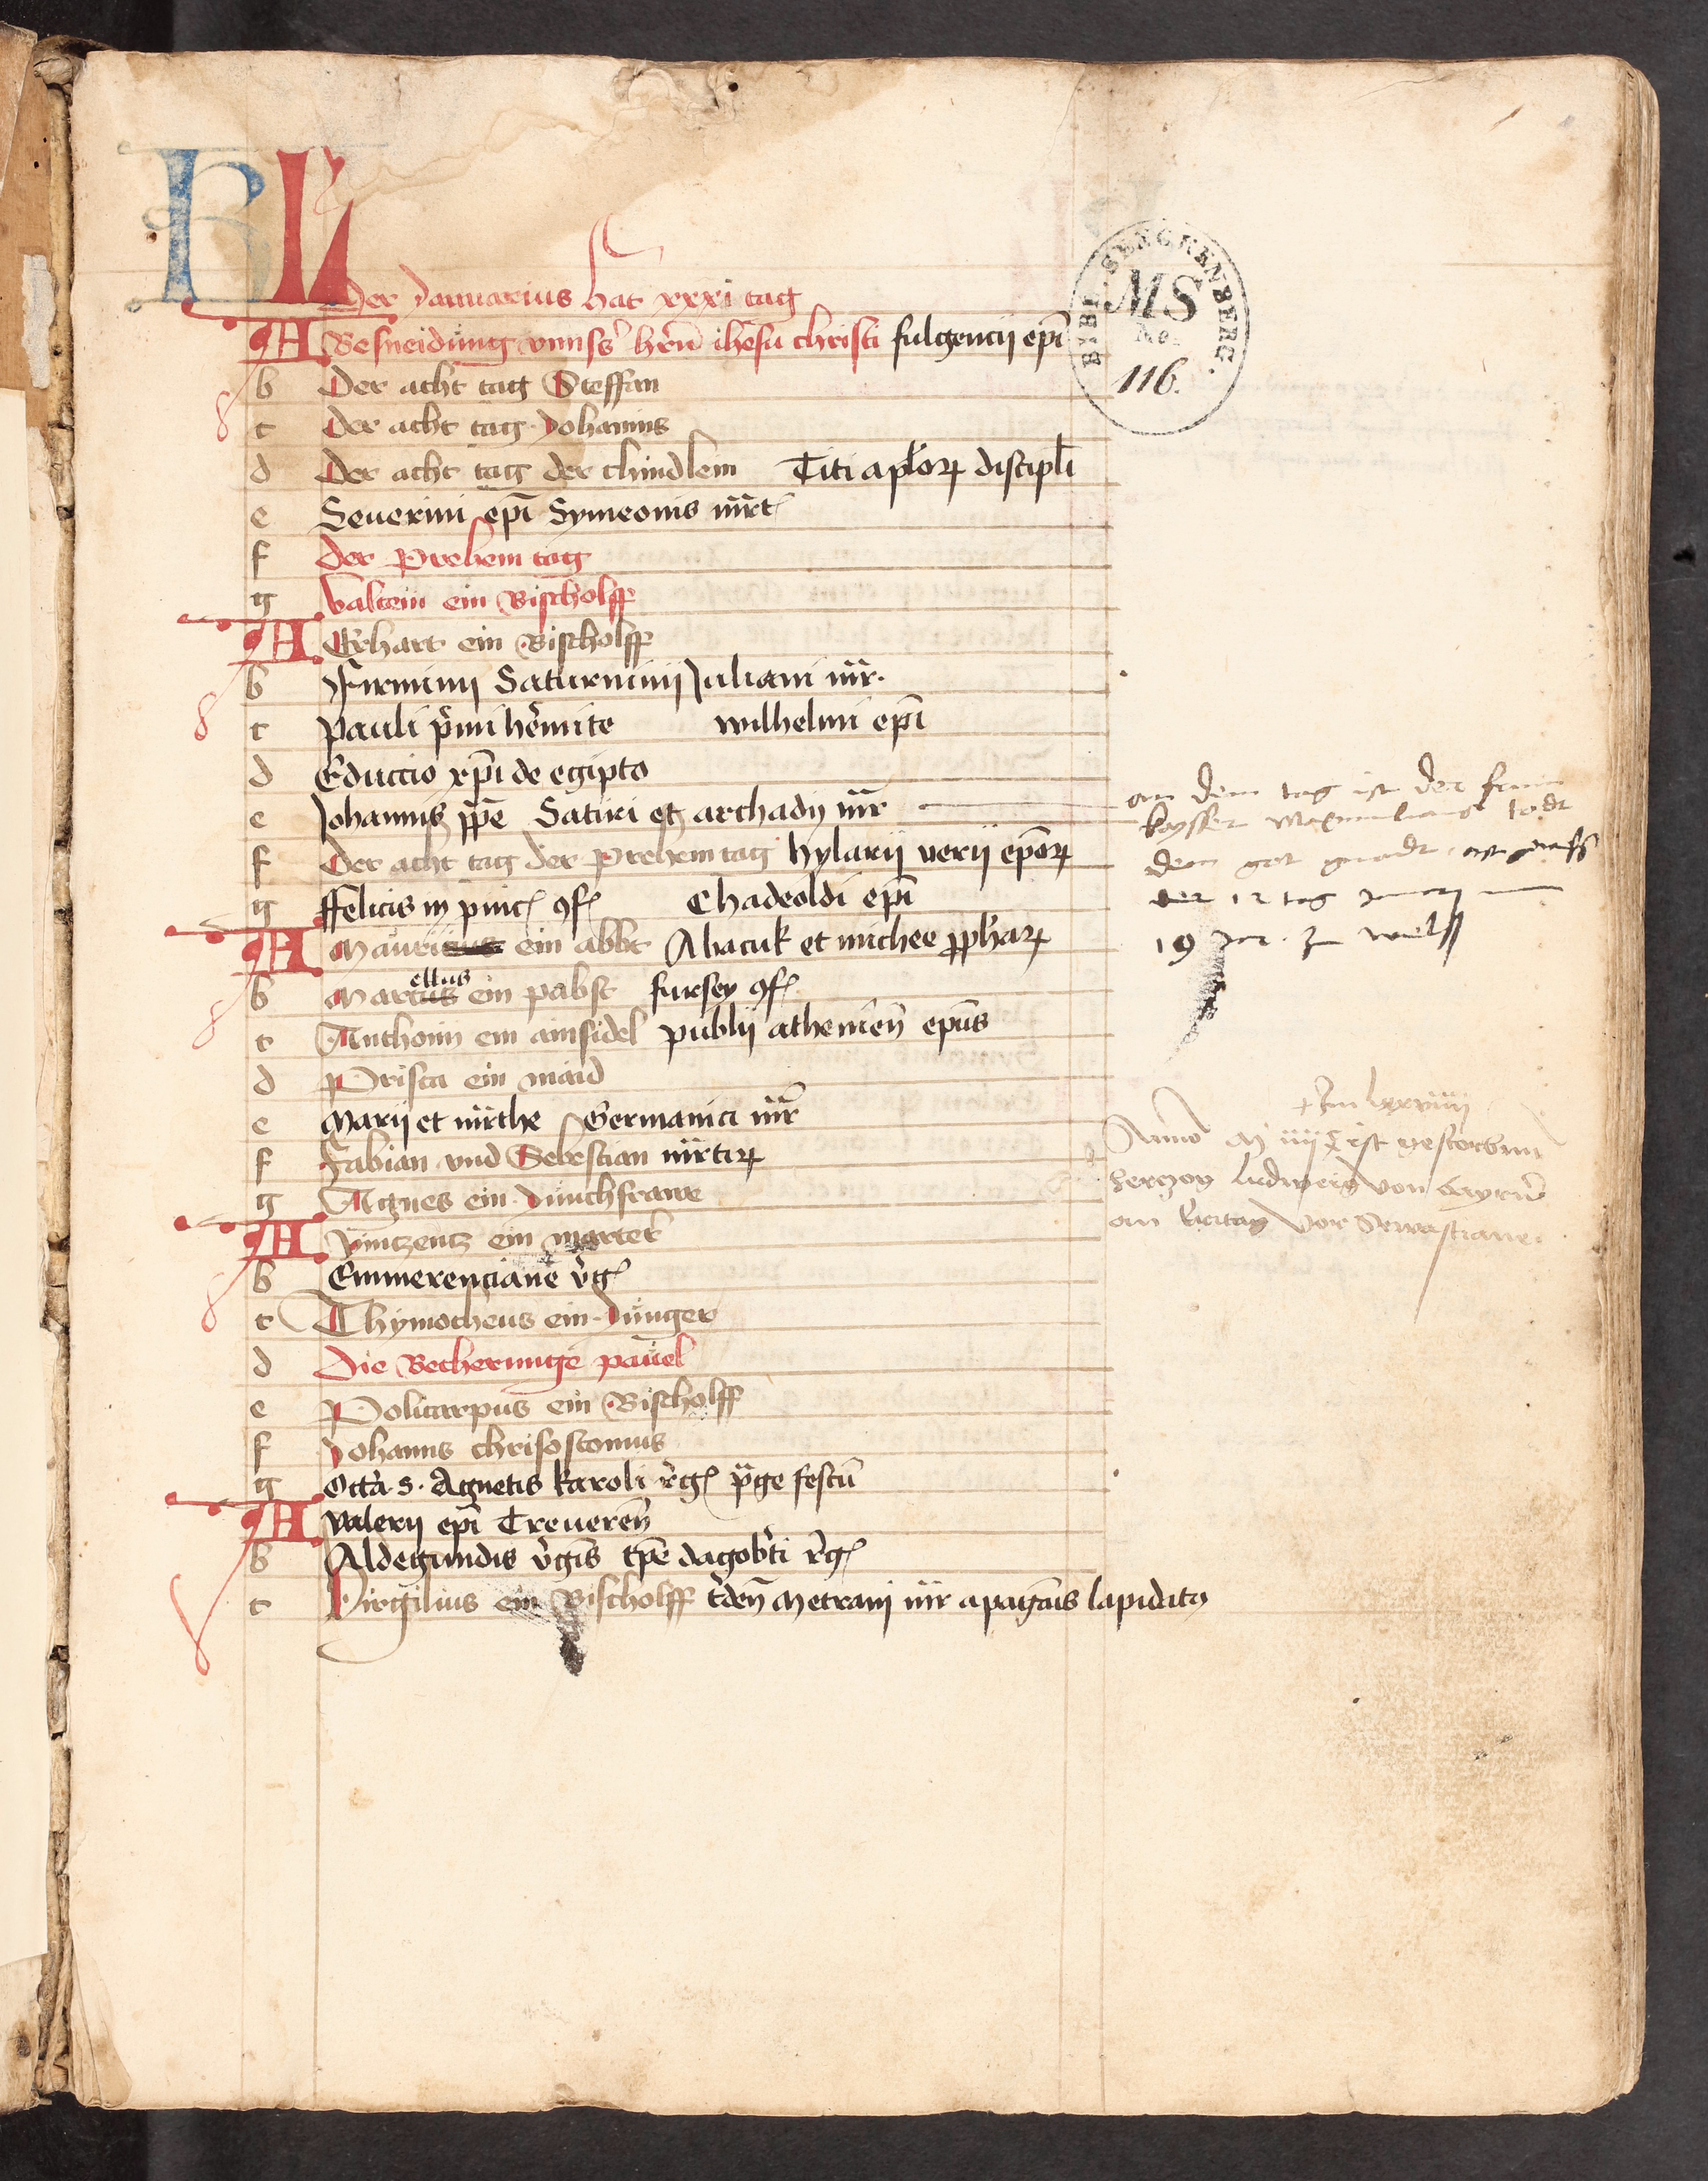 KL
Der Januarius hat xxxi tag
A Besneidung vnnsers hern ihesu christi fulgencij epi
b Der acht tag Steffan
c Der acht tag Johanns
d Der acht tag der chindlein Titi aplorum discipli
e Seuerini epi Symeonis mrt
f der Prehem tag
g Valtein ein Bischolff
A Erhart ein Bischolff
b Firminij Saturninij Juliani mr.
c Pauli primi heremite wilhelmi epi
d Eductio xpi de egipto
e Johannis ppe Satiri et archadij mr
f Der acht tag der Prehem tag hylarij verij eporum
g Ffelicis in pinc conf Chadeoldi epi
A Mauri ein abbt Abacuk et michee prophetarum
b Marcellus ein pabst fursey conf
c Anthonij ein ainsidel publij athenien epus
d Prisca ein maid
e Marij et mrthe Germanici mr
f Fabian vnd Sebestian mrtirum
g Agnes ein Junchfrawe
A Vintzentz ein marter
b Emmerenciane virg
c Thymotheus ein Junger
d Die Becherunge pauel
e Policarpus ein Bischolff
f Johanns chrisostomus
g Octa. S. Agnetis karoli reg festu
A valerij epi Treueren
b Aldegundis virgis tpe dagoberti reg
c Virgilius ein Bischolff Metrani mr a paganis lapidatus
BIBL. SENCKENBERG.
MS
No.
116.
an dem tag ist der frum
kaysser Maximilianus todt
dem got gnadt
der 12 tag
19 Jar. zu wels
lxxviiij
Anno M iiij C ist gestorbenn
herczog Ludweig von Bayrn
am vor Sewastiane